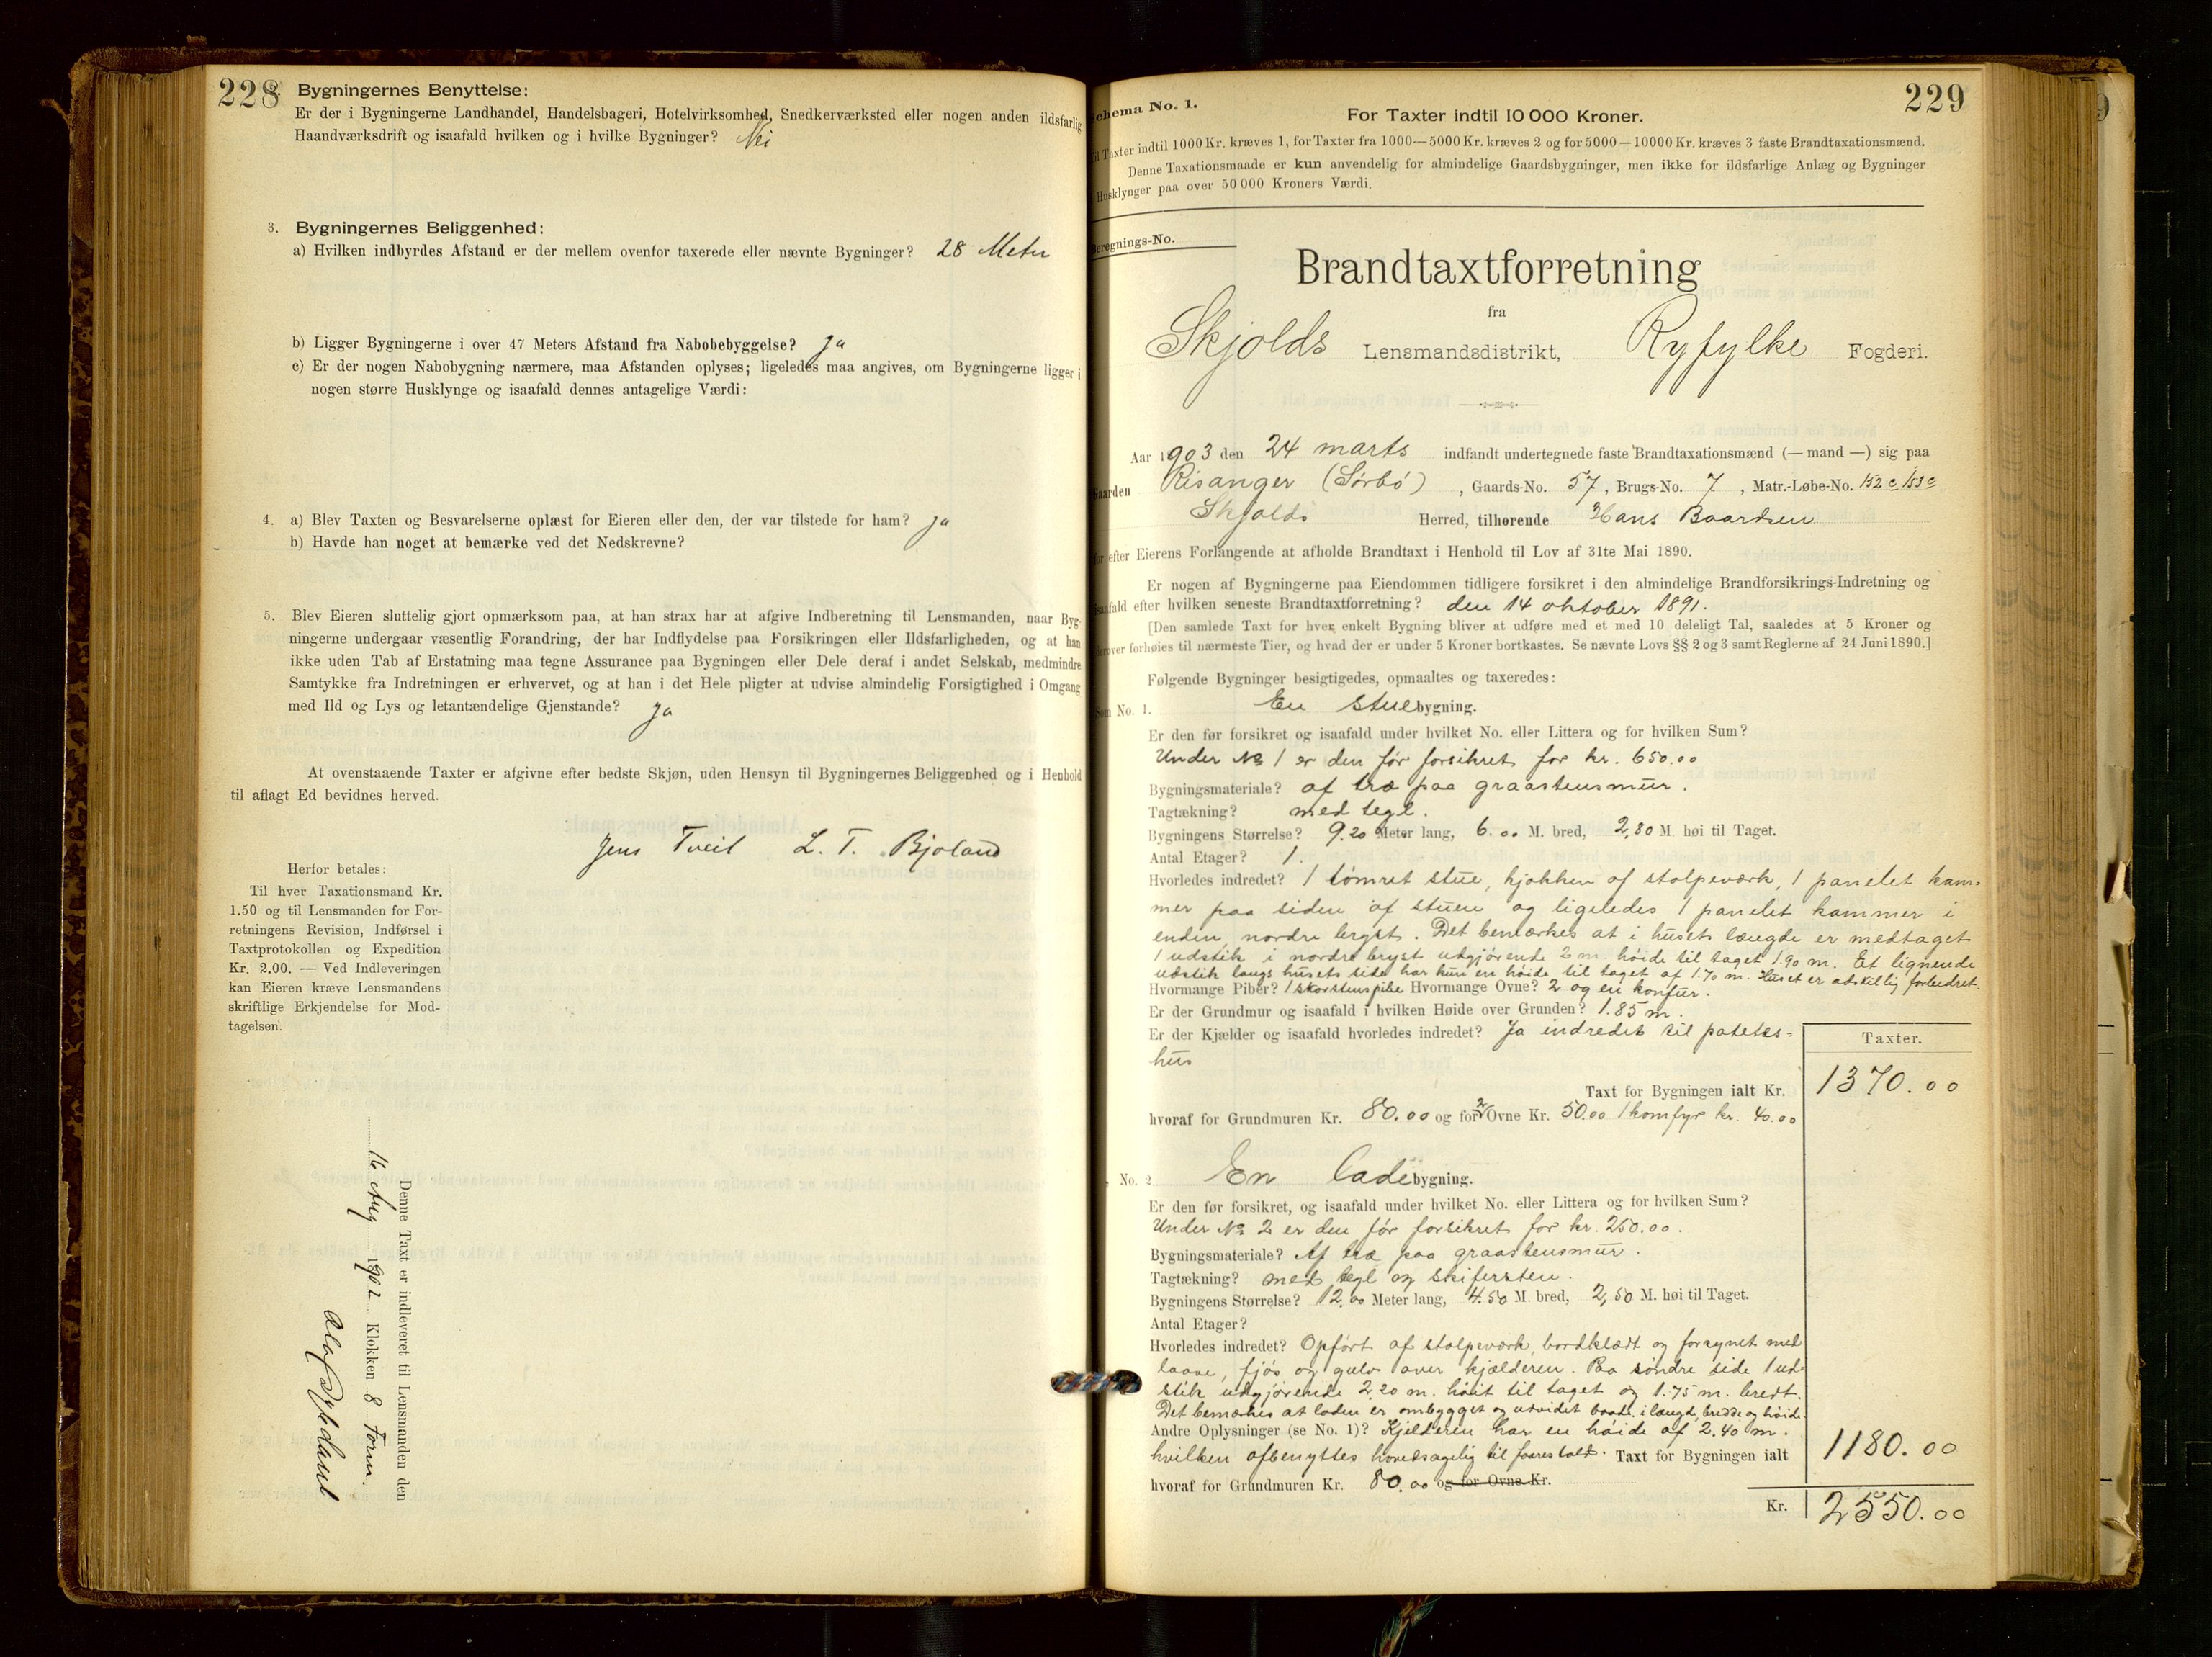 228
Bygningernes Benyttelse:
Er der i Bygningerne Landhandel, Handelsbageri, Hotelvirksomhed, Snedkerværksted eller nogen anden ildsfarlig
Haandværksdrift og isaafald hvilken og i hvilke Bygninger? Nei
3. Bygningernes Beliggenhed:
a) Hvilken indbyrdes Afstand er der mellem ovenfor taxerede eller nævnte Bygninger? 28 Meter
b) Ligger Bygningerne i over 47 Meters Afstand fra Nabobebyggelse? ja
c) Er der nogen Nabobygning nærmere, maa Afstanden oplyses; ligeledes maa angives, om Bygningerne ligger i
nogen større Husklynge og isaafald dennes antagelige Værdi:
4. a) Blev Taxten og Besvarelserne oplæst for Eieren eller den, der var tilstede for ham? ja
b) Havde han noget at bemærke ved det Nedskrevne?
5. Blev Eieren sluttelig gjort opmærksom paa, at han strax har at afgive Indberetning til Lensmanden, naar Byg-
ningerne undergaar væsentlig Forandring, der har Indflydelse paa Forsikringen eller Ildsfarligheden, og at han
ikke uden Tab af Erstatning maa tegne Assurance paa Bygningen eller Dele deraf i andet Selskab, medmindre
Samtykke fra Indretningen er erhvervet, og at han i det Hele pligter at udvise almindelig Forsigtighed i Omgang
med Ild og Lys og letantændelige Gjenstande? ja
At ovenstaaende Taxter er afgivne efter bedste Skjøn, uden Hensyn til Bygningernes Beliggenhed og i Henhold
til aflagt Ed bevidnes herved.
Jens Tveit L. T. Bjoland
Herfor betales:
Til hver Taxationsmand Kr.
1.50 og til Lensmanden for For-
retningens Revision, Indførsel i
Taxtprotokollen og Expedition
Kr. 2.00. — Ved Indleveringen
kan Eieren kræve Lensmandens
skriftlige Erkjendelse for Mod-
tagelsen.
Denne Taxt er indleveret til Lensmanden den
16 Aug 1902 Klokken 8 Form.
229
Schema No. 1.
For Taxter indtil 10 000 Kroner.
Til Taxter indtil 1000 Kr. kræves 1, for Taxter fra 1000—5000 Kr. kræves 2 og for 5000—10000 Kr. kræves 3 faste Brandtaxationsmænd.
Denne Taxationsmaade er kun anvendelig for almindelige Gaardsbygninger, men ikke for ildsfarlige Anlæg og Bygninger
Husklynger paa over 50 000 Kroners Værdi.
Beregnings-No.
Brandtaxtforretning
fra
Skjolds Lensmandsdistrikt, Ryfylke Fogderi.
Aar 1903 den 24 marts indfandt undertegnede faste Brandtaxationsmænd (— mand —) sig paa
Gaarden Risanger (Sørbø), Gaards-No. 57, Brugs-No. 7, Matr.-Løbe-No. 152c 153c
Skjolds Herred, tilhørende Hans Baardsen
for efter Eierens Forlangende at afholde Brandtaxt i Henhold til Lov af 31te Mai 1890.
Er nogen af Bygningerne paa Eiendommen tidligere forsikret i den almindelige Brandforsikrings-Indretning og
isaafald efter hvilken seneste Brandtaxtforretning? den 14 oktober 1891.
[Den samlede Taxt for hver enkelt Bygning bliver at udføre med et med 10 deleligt Tal, saaledes at 5 Kroner og
derover forhøies til nærmeste Tier, og hvad der er under 5 Kroner bortkastes. Se nævnte Lovs §§ 2 og 3 samt Reglerne af 24 Juni 1890.]
Følgende Bygninger besigtigedes, opmaaltes og taxeredes:
Som No. 1. En stuebygning.
Er den før forsikret og isaafald under hvilket No. eller Littera og for hvilken Sum?
Under No 1 er den før forsikret for kr. 650.00
Bygningsmateriale? af træ paa graastensmur.
Tagtækning? med tegl.
Bygningens Størrelse? 9.20 Meter lang, 6.00 M. bred, 2,80 M. høi til Taget.
Antal Etager? 1.
Hvorledes indredet? 1 tømret stue, kjøkken af stolpeværk, 1 panelet kam-
mer paa siden af stuen og ligeledes 1 panelet kammer i
enden, nordre bryst. Det bemærkes at i husets længde er medtaget
1 udstik i nordre bryst udgjørende 2 m. høide til taget 1.90 m. Et lignende
udstik langs husets side har kun en høide til taget af 1.70 m. Huset er adskillig forbedret.
Hvormange Piber? 1 skorstenspibe Hvormange Ovne? 2 og en komfur.
Er der Grundmur og isaafald i hvilken Høide over Grunden? 1.85 m.
Er der Kjælder og isaafald hvorledes indredet? Ja indredet til potetes-
hus
Taxter.
Taxt for Bygningen ialt Kr. 1370.00
hvoraf for Grundmuren Kr. 80.00 og for 2 Ovne Kr. 50.00 1 komfyr kr. 40.00
No. 2. En ladebygning.
Er den før forsikret, og isaafald under hvilket No. eller Littera og for hvilken Sum?
Under No 2 er den før forsikret for kr. 250.00.
Bygningsmateriale? Af træ paa graastensmur.
Tagtækning? med tegl og skifersten.
Bygningens Størrelse? 12.00 Meter lang, 4.50 M. bred, 2,50 M. høi til Taget.
Antal Etager?
Hvorledes indredet? Opført af stolpeværk, bordklædt og forsynet med
laave, fjøs og gulv over kjælderen. Paa søndre side 1 ud-
stik udgjørende 2.20 m. høit til taget og 1.75 m. bredt.
Det bemærkes at laden er ombygget og udvidet baade i længde, bredde og høide.
Andre Oplysninger (se No. 1)? Kjelderen har en høide af 2.40 m.
hvilken afbenyttes hovedsagelig til faarestald. Taxt for Bygningen ialt 1180.00
hvoraf for Grundmuren Kr. 80.00 og for Ovne Kr.
Kr. 2550.00